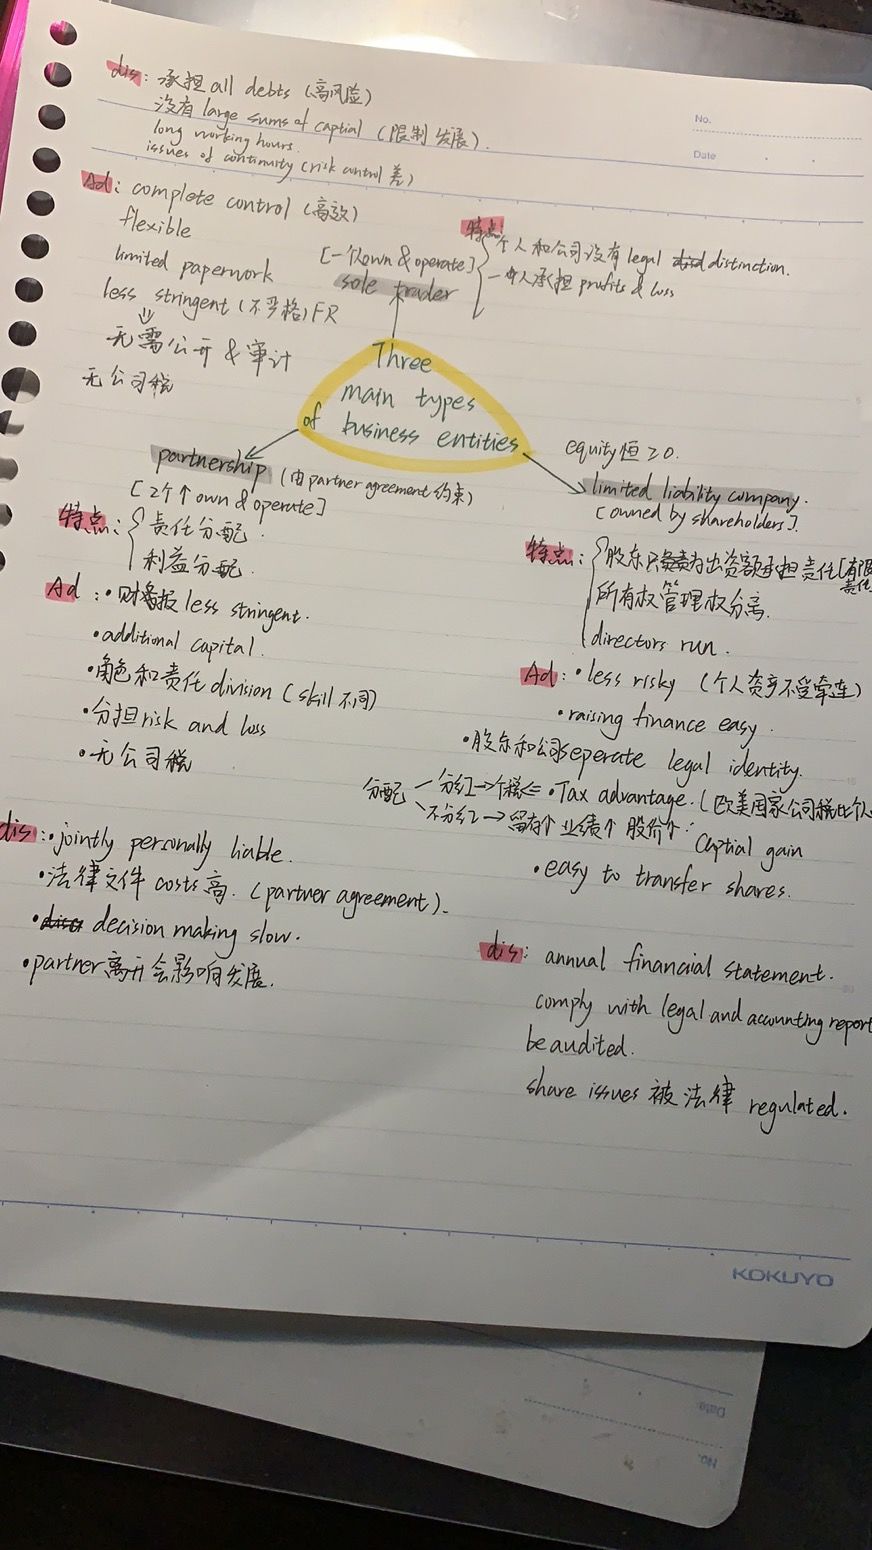 dis: 承担 all debts (高风险)
没有 large sums of captial (限制发展).
long working hours.
issues of continuity (risk control 差)
No.
Date
Ad: complete control (高效)
flexible
limited paperwork
less stringent (不严格) FR
无需公开 & 审计
无公司税
特点:
个人和公司没有 legal distinction.
一个人承担 profits & loss
[一个own & operate]
sole trader
Three
main types
of business entities
partnership (由 partner agreement 约束)
[2个↑ own & operate]
特点: 责任分配.
利益分配.
Ad: •财务报 less stringent.
•additional capital.
•角色和责任 division (skill 不同)
•分担 risk and loss
•无公司税
dis: •jointly personally liable.
•法律文件 costs 高. (partner agreement).
• decision making slow.
•partner 离开会影响发展.
equity 恒 ≥0.
limited liability company.
[owned by shareholders].
特点: 股东只为出资额承担责任[有限
责任
所有权管理权分离.
directors run.
Ad: •less risky (个人资产不受牵连)
•raising finance easy.
•股东和公司 seperate legal identity.
分配 分红→个税⇐ •Tax advantage. (欧美国家公司税比个人
不分红→留存↑ 业绩↑ 股价↑: Captial gain
•easy to transfer shares.
dis: annual financial statement.
comply with legal and accounting report
be audited.
share issues 被法律 regulated.
KOKUYO
Date
No.